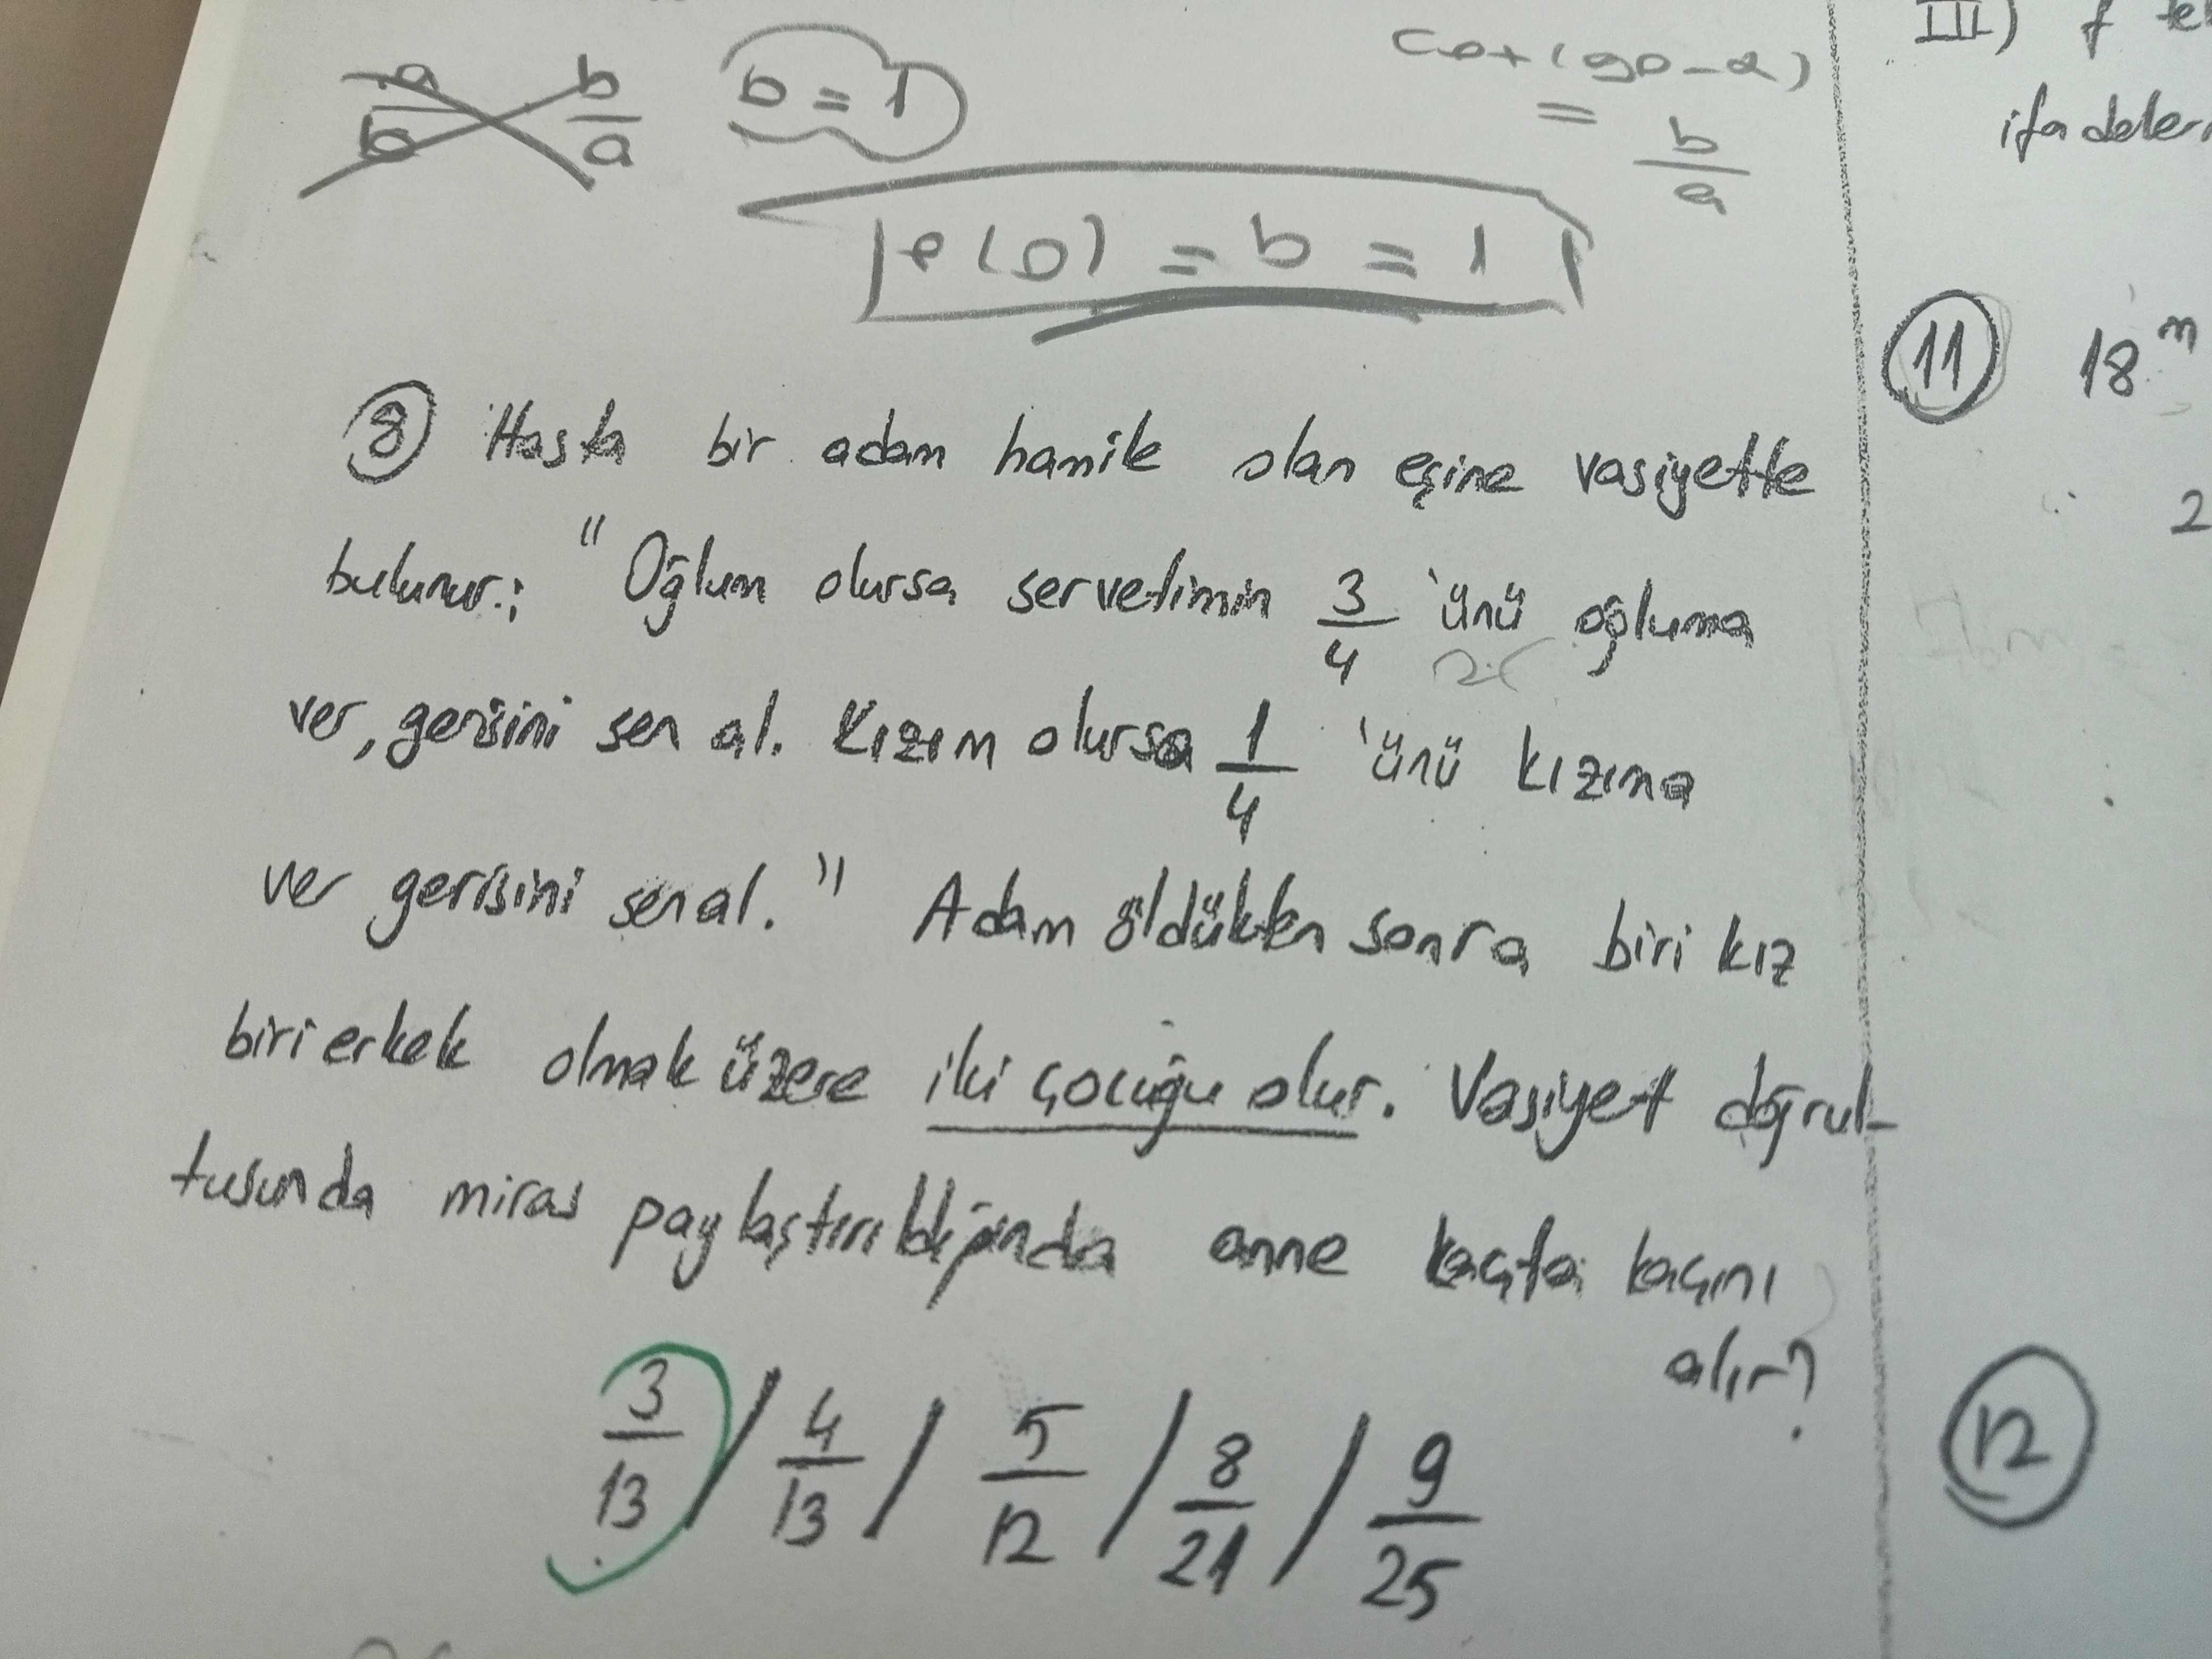 a/b b/a b = 1
cot(90-α)
= b/a
P(0) = b = 1
III) f
ifadeler
⑧ Hasta bir adam hamile olan eşine vasiyette
bulunur.: "Oğlum olursa servetimin 3/4 'ünü oğluma
ver, gerisini sen al. Kızım olursa 1/4 'ünü kızıma
ver gerisini sen al." Adam öldükten sonra biri kız
biri erkek olmak üzere iki çocuğu olur. Vasiyet doğrul-
tusunda miras paylaştırıldığında anne kaçta kaçını
alır?
3/13 / 4/13 / 5/12 / 8/21 / 9/25
⑪ 18^m
2
⑫